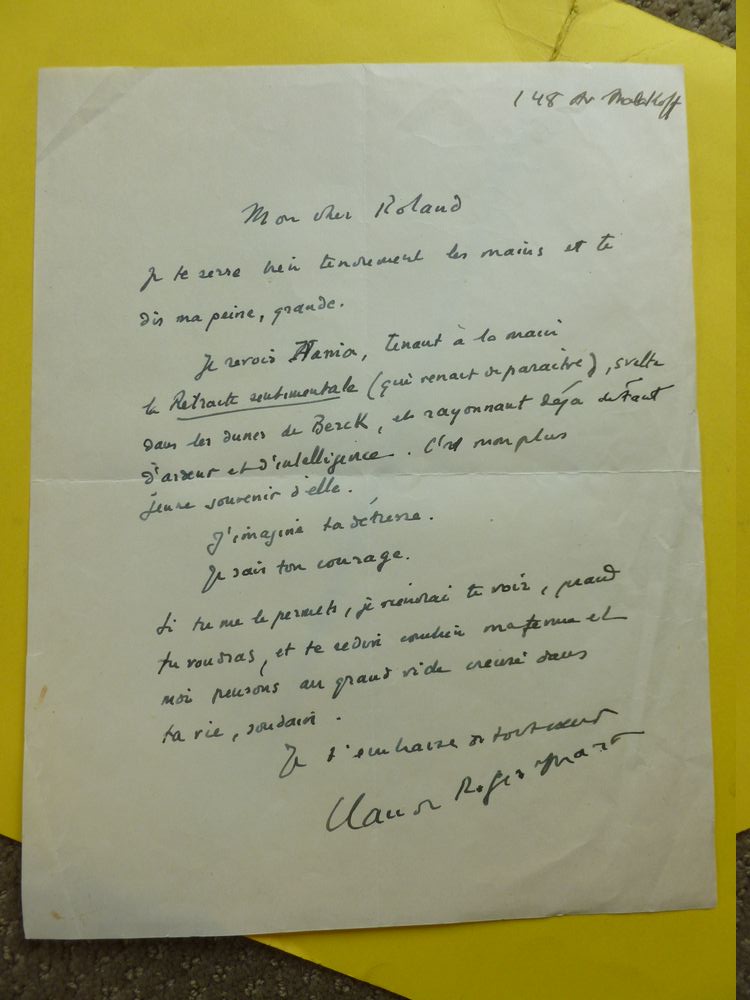 148 Av Malakoff
Mon cher Roland
Je te serre bien tendrement les mains et te
dis ma peine, grande.
Je revois Hania, tenant à la main
la Retraite sentimentale (qui venait de paraître), svelte
dans les dunes de Berck, et rayonnant déjà de tant
d'ardeur et d'intelligence. C'est mon plus
jeune souvenir d'elle.
J'imagine ta détresse.
Je sais ton courage.
Si tu me le permets, je viendrai te voir, quand
tu voudras, et te redirai combien ma femme et
moi pensons au grand vide creusé dans
ta vie, soudain.
Je t'embrasse de tout cœur
Claude Roger Marx